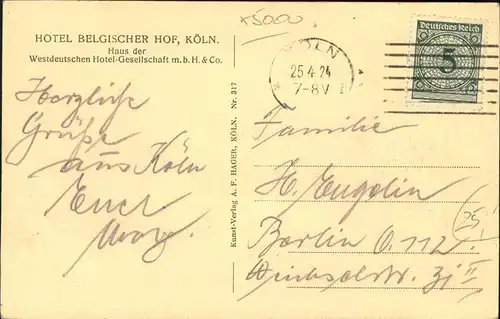 HOTEL BELGISCHER HOF, KÖLN.
Haus der
Westdeutschen Hotel-Gesellschaft m. b. H. & Co.
Herzliche
Grüße
aus Köln
Euer
Kunst-Verlag A. F. HAGER, KÖLN. Nr. 317
x5000
KÖLN
25.4.24
7-8V
Deutsches Reich
5
Familie
H. Engelin
Berlin O. 112.
II
25